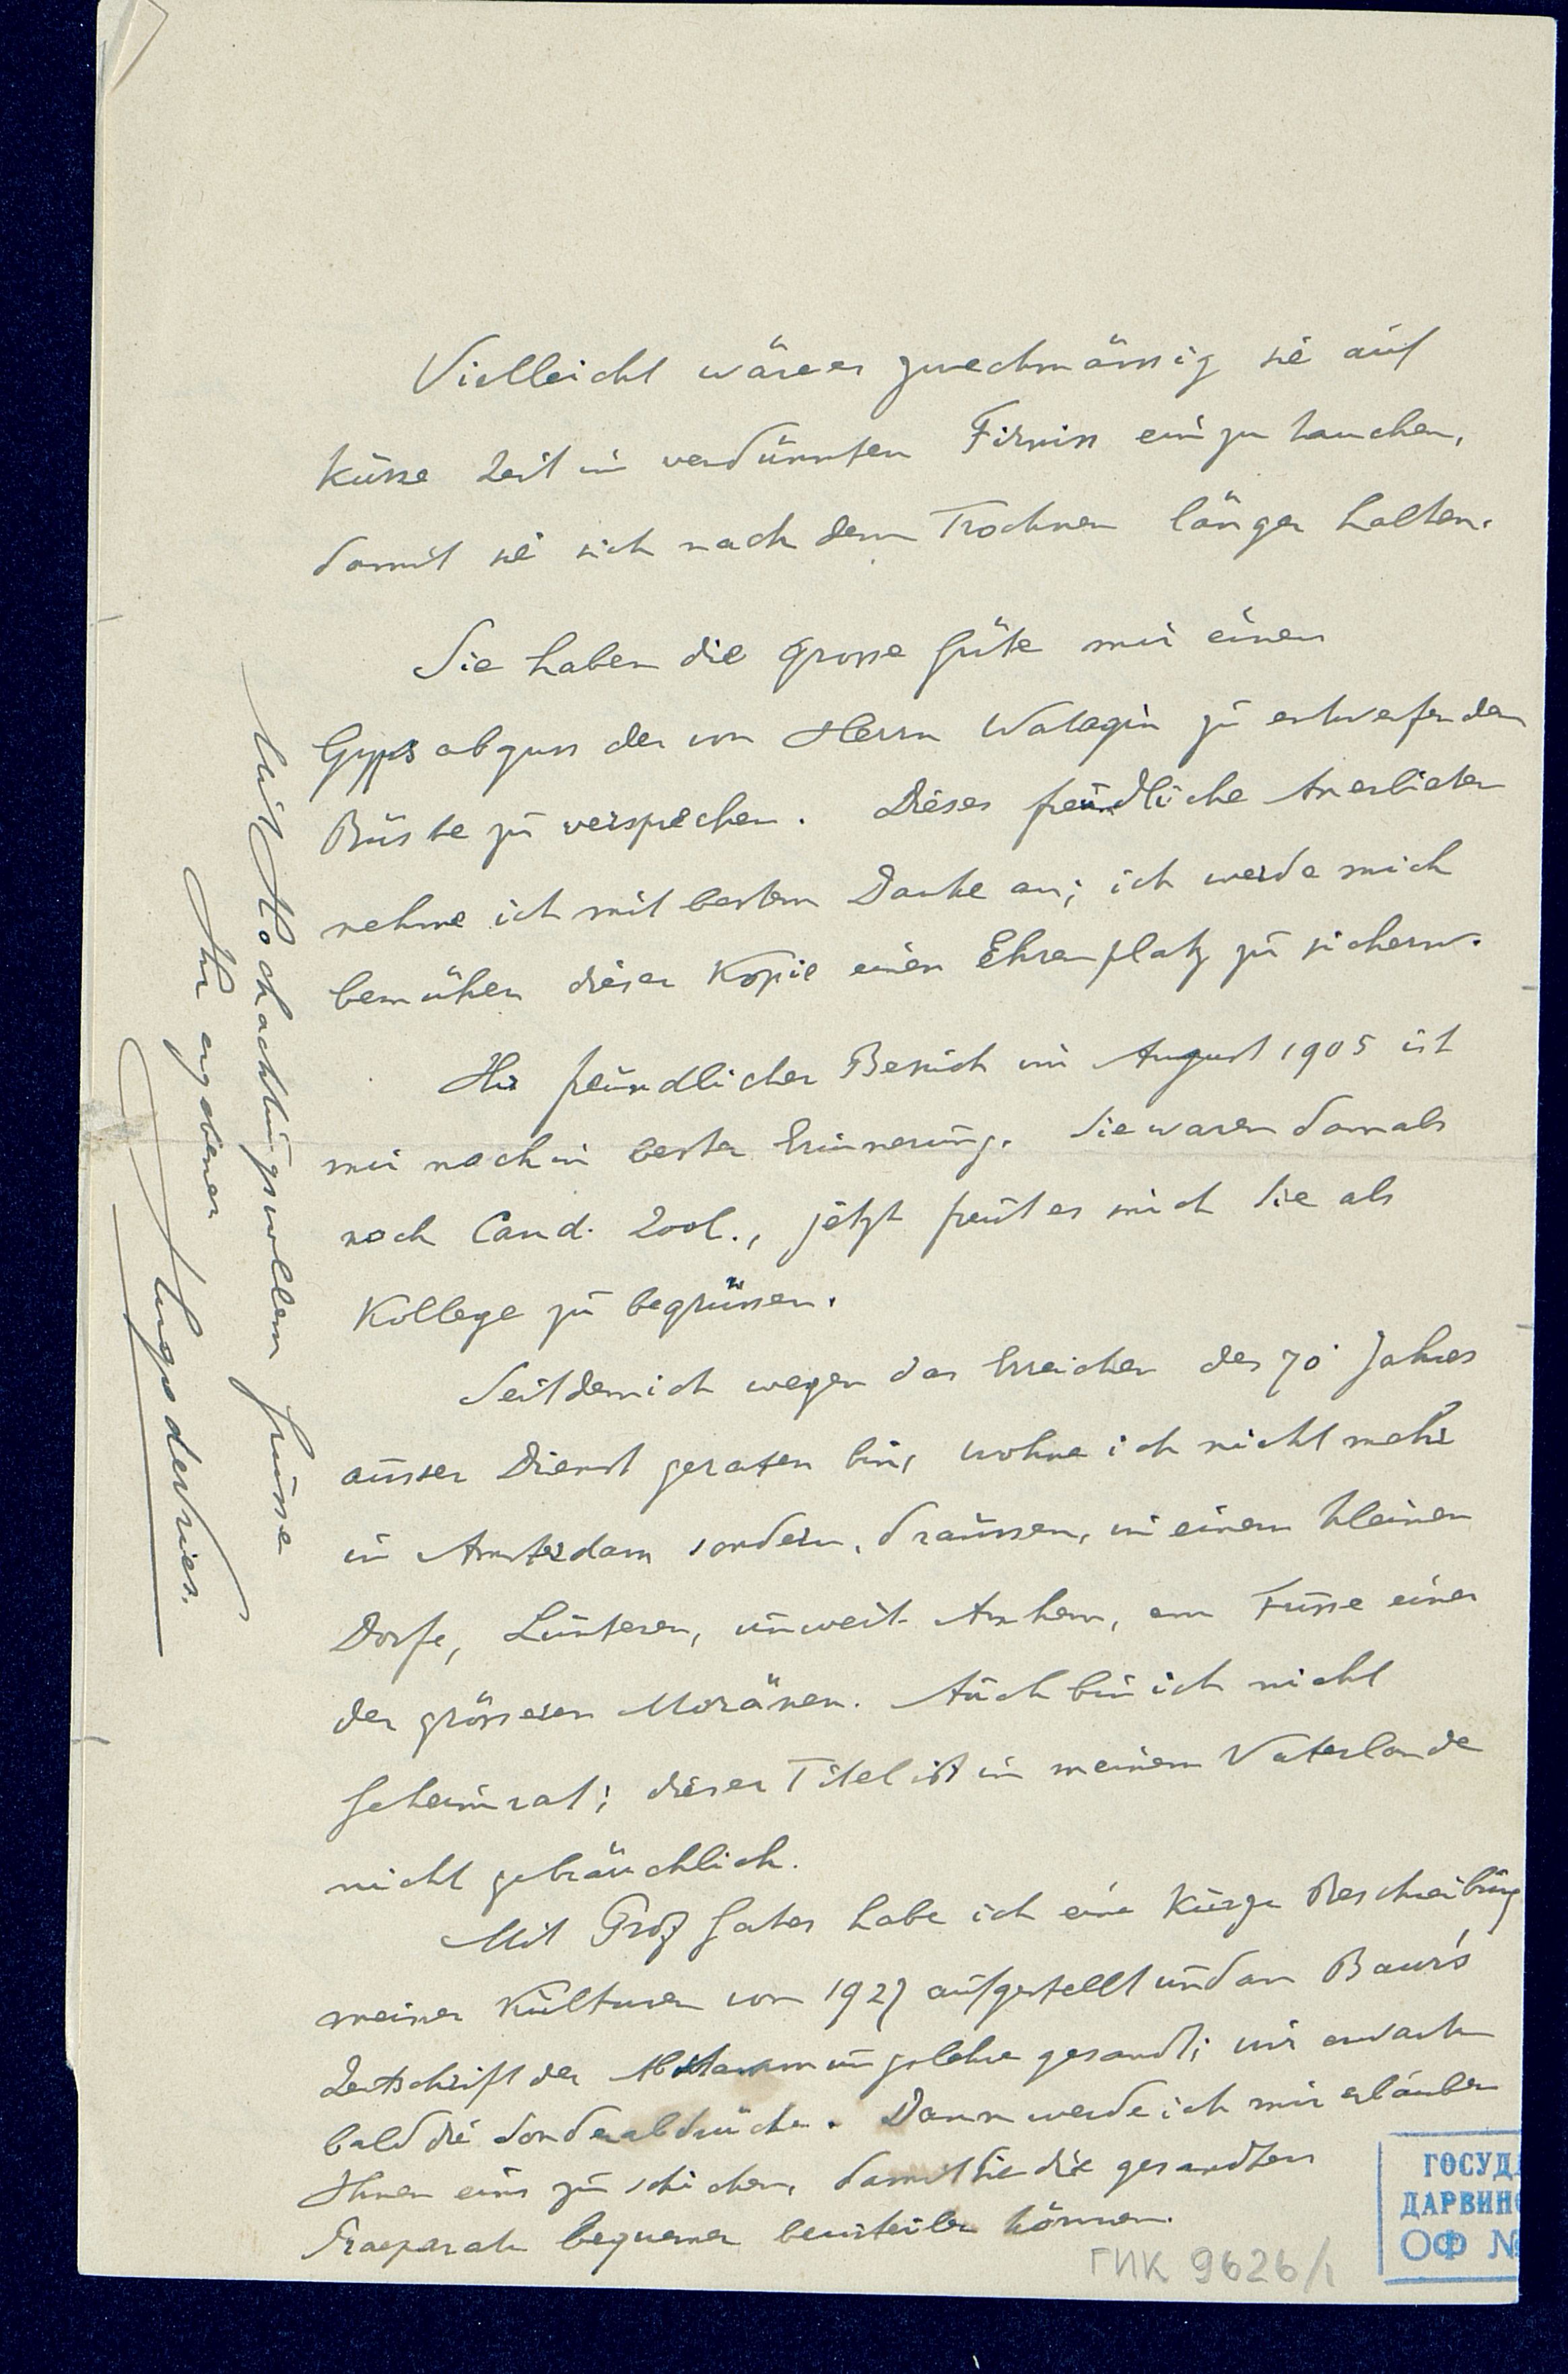 Vielleicht wäre es zweckmässig sie auf
kurze Zeit in verdünnten Firniss ein zu tauchen,
damit sie sich nach dem Trocknen länger halten.
Sie haben die grosse Güte mir einen
Gypsabguss der von Herrn Watagin zu entwerfenden
Büste zu versprechen. Dieses freundliche Anerbieten
nehme ich mit bestem Danke an; ich werde mich
bemühen dieser Kopie einen Ehrenplatz zu sichern.
Ihr freundlicher Besuch im August 1905 ist
mir noch in bester Erinnerung. Sie waren damals
noch Cand. Zool., jetzt freut es mich Sie als
Kollege zu begrüssen.
Seitdem ich wegen das Erreichen des 70. Jahres
ausser Dienst geraten bin, wohne ich nicht mehr
in Amsterdam sondern, draussen, in einem kleinen
Dorfe, Lunteren, unweit Arnhem, am Fusse einer
der grösseren Moränen. Auch bin ich nicht
Geheimrat; dieser Titel ist in meinem Vaterlande
nicht gebräuchlich.
Mit Prof Gates habe ich eine kurze Beschreibung
meiner Kulturen von 1927 aufgestellt und an Baur's
Zeitschrift der Abstammungslehre gesandt; wir erwarten
bald die Sonderabdrücke. Dann werde ich mir erlauben
Ihnen eins zu schicken, damit Sie die gesandten
Praeparate bequemer beurteilen können.
Mit Hochachtungsvollem Grusse
Ihr ergebener
Hugo de Vries.
ГОСУД
ДАРВИН
ОФ №
ГИК 9626/1